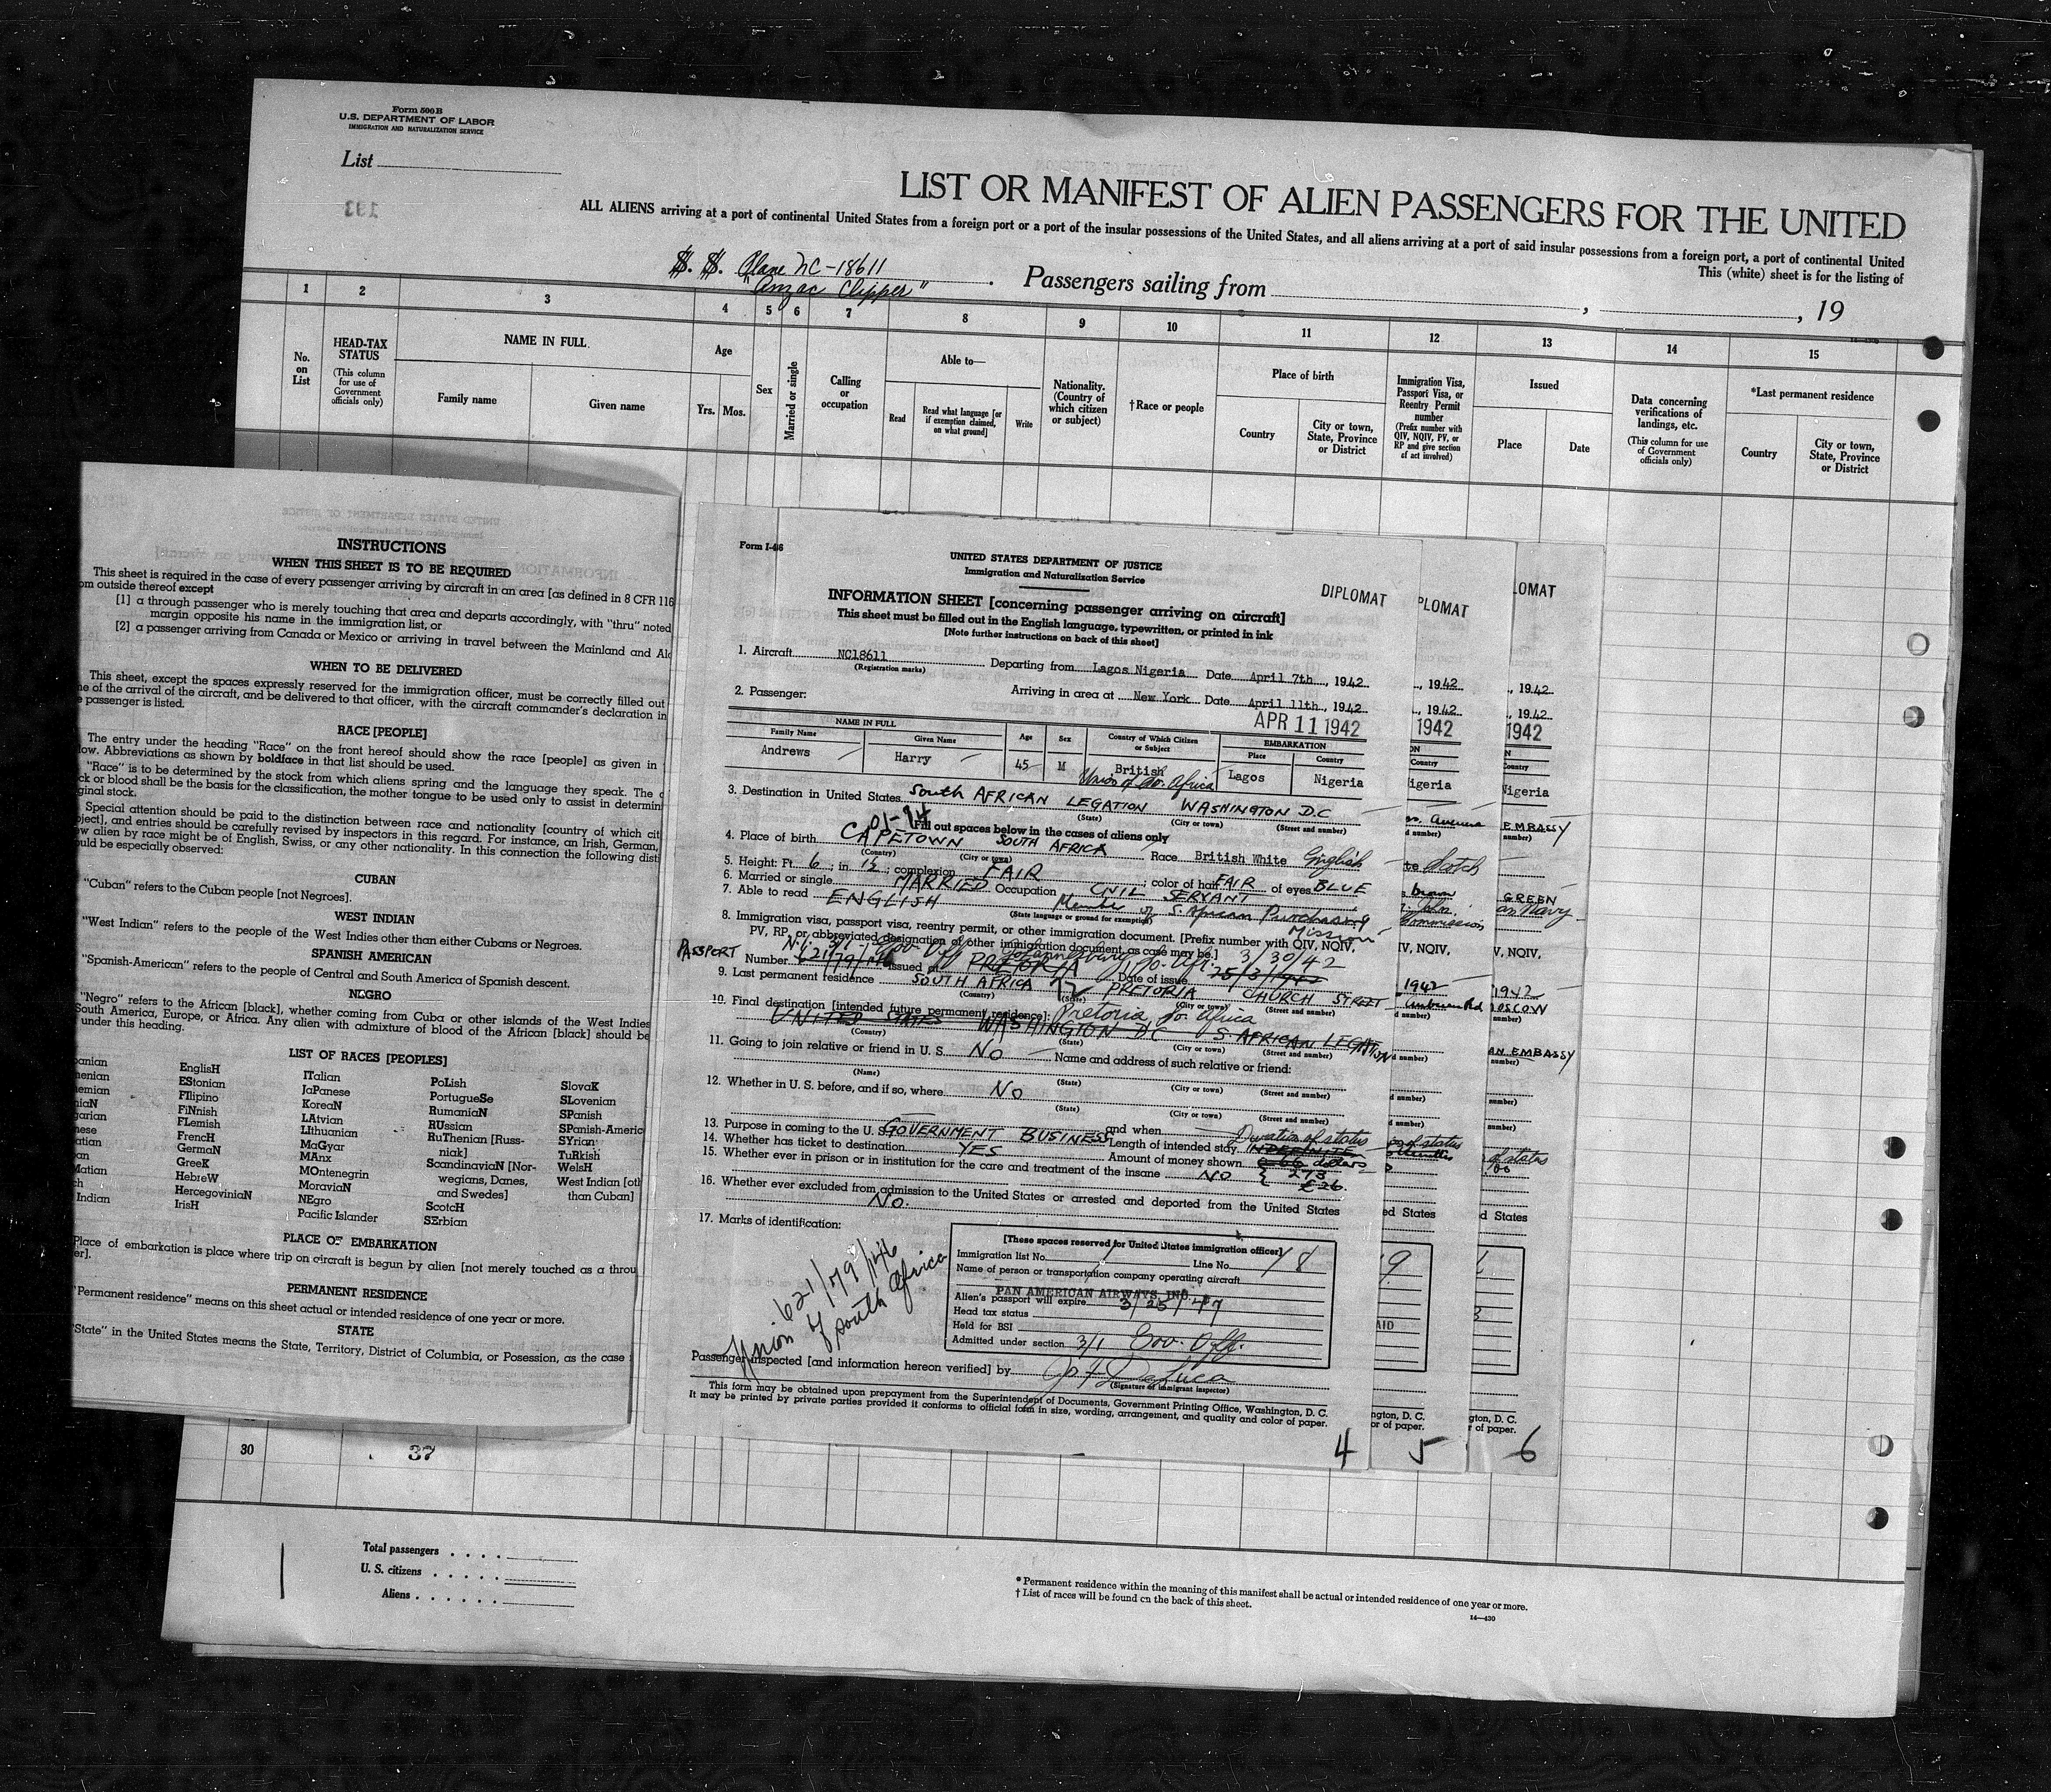 Form 500 B
U.S. DEPARTMENT OF LABOR
IMMIGRATION AND NATURALIZATION SERVICE
List
193
LIST OR MANIFEST OF ALIEN PASSENGERS FOR THE UNITED
ALL ALIENS arriving at a port of continental United States from a foreign port or a port of the insular possessions of the United States, and all aliens arriving at a port of said insular possessions from a foreign port, a port of continental United
This (white) sheet is for the listing of
S. S. Plane NC-18611
"Anzac Clipper"
Passengers sailing from , , 19
1 2 3 4 5 6 7 8 9 10 11 12 13 14 15
No. on List
HEAD-TAX STATUS
(This column for use of Government officials only)
NAME IN FULL
Family name Given name
Age
Yrs. Mos.
Sex
Married or single
Calling or occupation
Able to—
Read
Read what language [or if exemption claimed, on what ground]
Write
Nationality. (Country of which citizen or subject)
†Race or people
Place of birth
Country
City or town, State, Province or District
Immigration Visa, Passport Visa, or Reentry Permit number
(Prefix number with QIV, NQIV, PV, or RP and give section of act involved)
Issued
Place Date
Data concerning verifications of landings, etc.
(This column for use of Government officials only)
*Last permanent residence
Country
City or town, State, Province or District
INSTRUCTIONS
WHEN THIS SHEET IS TO BE REQUIRED
This sheet is required in the case of every passenger arriving by aircraft in an area [as defined in 8 CFR 116
om outside thereof except
[1] a through passenger who is merely touching that area and departs accordingly, with "thru" noted
margin opposite his name in the immigration list, or
[2] a passenger arriving from Canada or Mexico or arriving in travel between the Mainland and Al
WHEN TO BE DELIVERED
This sheet, except the spaces expressly reserved for the immigration officer, must be correctly filled out
ne of the arrival of the aircraft, and be delivered to that officer, with the aircraft commander's declaration in
e passenger is listed.
RACE [PEOPLE]
The entry under the heading "Race" on the front hereof should show the race [people] as given in
low. Abbreviations as shown by boldface in that list should be used.
"Race" is to be determined by the stock from which aliens spring and the language they speak. The
ck or blood shall be the basis for the classification, the mother tongue to be used only to assist in determin
ginal stock.
Special attention should be paid to the distinction between race and nationality [country of which cit
bject], and entries should be carefully revised by inspectors in this regard. For instance, an Irish, German,
ew alien by race might be of English, Swiss, or any other nationality. In this connection the following dist
ould be especially observed:
CUBAN
"Cuban" refers to the Cuban people [not Negroes].
WEST INDIAN
"West Indian" refers to the people of the West Indies other than either Cubans or Negroes.
SPANISH AMERICAN
"Spanish-American" refers to the people of Central and South America of Spanish descent.
NEGRO
"Negro" refers to the African [black], whether coming from Cuba or other islands of the West Indies
South America, Europe, or Africa. Any alien with admixture of blood of the African [black] should be
under this heading.
LIST OF RACES [PEOPLES]
EnglisH
EStonian
FIlipino
FiNnish
FLemish
FrencH
GermaN
GreeK
HebreW
HercegoviniaN
IrisH
ITalian
JaPanese
KoreaN
LAtvian
LIthuanian
MaGyar
MAnx
MOntenegrin
MoraviaN
NEgro
Pacific Islander
PoLish
PortugueSe
RumaniaN
RUssian
RuThenian [Russ-
niak]
ScandinaviaN [Nor-
wegians, Danes,
and Swedes]
ScotcH
SErbian
SlovaK
SLovenian
SPanish
SPanish-Americ
SYrian
TuRkish
WelsH
West Indian [oth
than Cuban]
PLACE OF EMBARKATION
Place of embarkation is place where trip on aircraft is begun by alien [not merely touched as a throu
er].
PERMANENT RESIDENCE
"Permanent residence" means on this sheet actual or intended residence of one year or more.
STATE
"State" in the United States means the State, Territory, District of Columbia, or Posession, as the case
Form I-466
UNITED STATES DEPARTMENT OF JUSTICE
Immigration and Naturalization Service
DIPLOMAT
INFORMATION SHEET [concerning passenger arriving on aircraft]
This sheet must be filled out in the English language, typewritten, or printed in ink
[Note further instructions on back of this sheet]
1. Aircraft NC18611 Departing from Lagos Nigeria Date April 7th, 1942
(Registration marks)
2. Passenger: Arriving in area at New York Date April 11th, 1942
APR 11 1942
NAME IN FULL
Family Name Given Name Age Sex Country of Which Citizen or Subject EMBARKATION
Place Country
Andrews Harry 45 M British Lagos Nigeria
Union of So. Africa
3. Destination in United States South AFRICAN LEGATION WASHINGTON D.C
(State) (City or town) (Street and number)
Fill out spaces below in the cases of aliens only
4. Place of birth CAPETOWN SOUTH AFRICA Race British White English
(Country) (City or town)
5. Height: Ft. 6; in 1½; complexion FAIR; color of hair FAIR of eyes BLUE
6. Married or single MARRIED Occupation CIVIL SERVANT
7. Able to read ENGLISH Member of S. African Purchasing Mission
(State language or ground for exemption)
8. Immigration visa, passport visa, reentry permit, or other immigration document. [Prefix number with QIV, NQIV,
PV, RP, or abbreviated designation of other immigration document, as case may be.]
PASSPORT
3/1 Gov. Off Johannesburg, So. Afr. 3/30/42
Number 621/79/146 Issued at PRETORIA Date of issue 25/3/1942
9. Last permanent residence SOUTH AFRICA PRETORIA 72 CHURCH STREET
(Country) (State) (City or town) (Street and number)
10. Final destination [intended future permanent residence]: Pretoria So. Africa
UNITED STATES WASHINGTON DC S. AFRICAN LEGATION
(Country) (State) (City or town) (Street and number)
11. Going to join relative or friend in U. S. No Name and address of such relative or friend:
(Name) (State) (City or town) (Street and number)
12. Whether in U. S. before, and if so, where No
(State) (City or town) (Street and number)
(State) (City or town) (Street and number)
and when
13. Purpose in coming to the U. S. GOVERNMENT BUSINESS Length of intended stay INDEFINITE Duration of status
14. Whether has ticket to destination YES Amount of money shown dollars
15. Whether ever in prison or in institution for the care and treatment of the insane NO
273
£26
16. Whether ever excluded from admission to the United States or arrested and deported from the United States
No.
17. Marks of identification:
621/79/146
Union of South Africa
[These spaces reserved for United States immigration officer]
Immigration list No. Line No. 8
Name of person or transportation company operating aircraft
PAN AMERICAN AIRWAYS, INC.
Alien's passport will expire 3/25/47
Head tax status
Held for BSI
Admitted under section 3/1 Gov. Off.
Passenger inspected [and information hereon verified] by
(Signature of immigrant inspector)
This form may be obtained upon prepayment from the Superintendent of Documents, Government Printing Office, Washington, D. C.
It may be printed by private parties provided it conforms to official form in size, wording, arrangement, and quality and color of paper.
4
PLOMAT
, 1942
, 1942
1942
Country
igeria
Scotch
brown
Commission
IV, NQIV,
1942
of status
ed States
9
AID
ngton, D. C.
or of paper.
5
LOMAT
, 1942
, 1942
1942
Country
Nigeria
EMBASSY
GREEN
Navy
V, NQIV,
1942
MOSCOW
AN EMBASSY
of status
d States
3
gton, D. C.
r of paper.
6
30 37
Total passengers
U. S. citizens
Aliens
* Permanent residence within the meaning of this manifest shall be actual or intended residence of one year or more.
† List of races will be found on the back of this sheet.
14—430